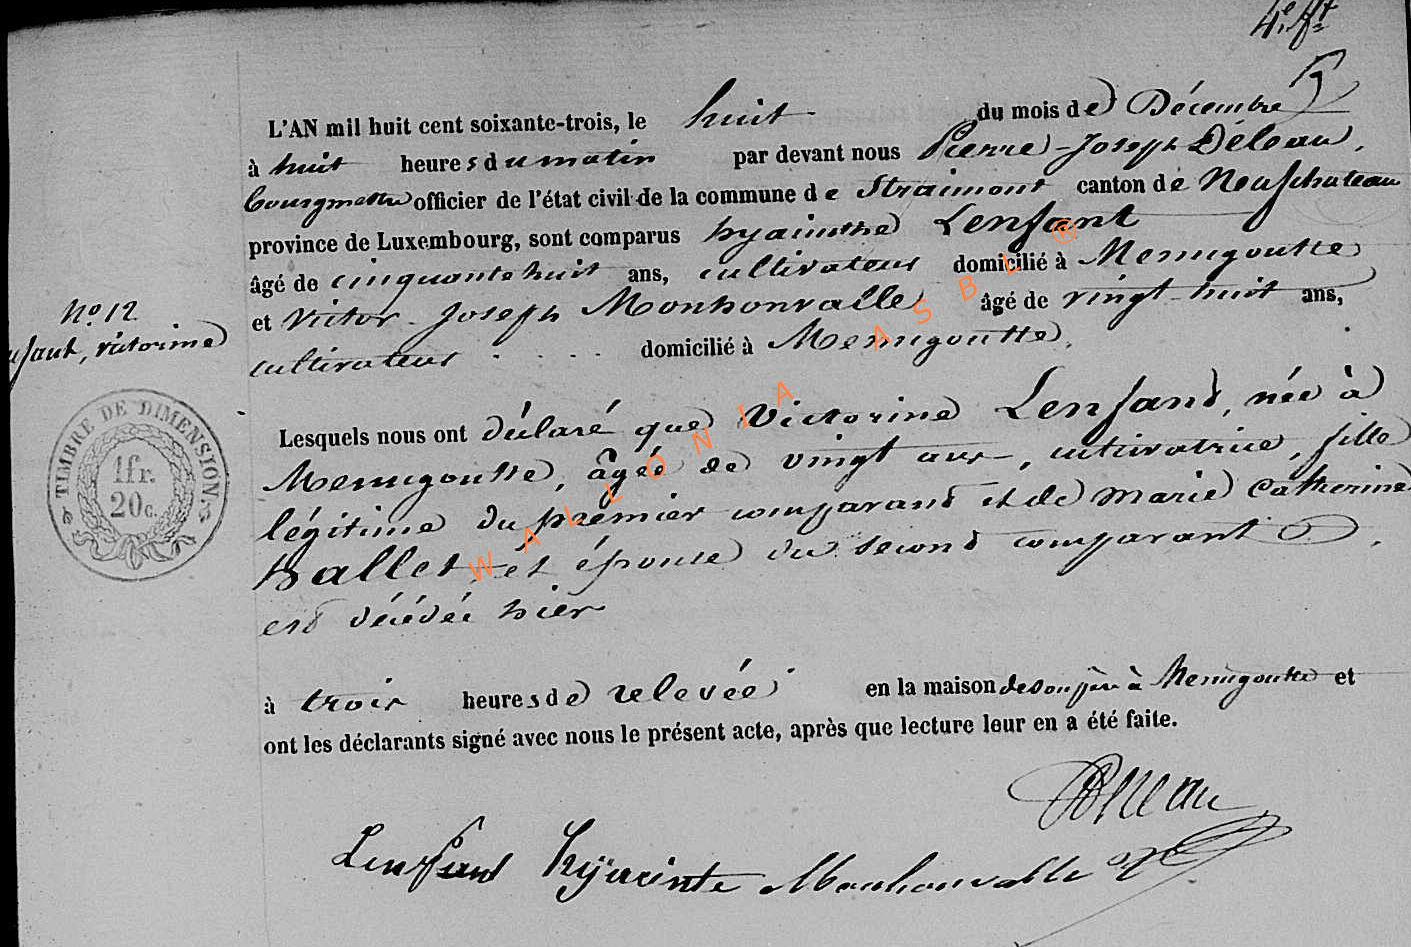 L'AN mil huit cent soixante-trois, le huit du mois de Décembre
à huit heures du matin par devant nous Pierre-Joseph Déleau,
bourgmestre officier de l'état civil de la commune de Straimont canton de Neufchateau
province de Luxembourg, sont comparus hyacinthe Lenfant
âgé de cinquante huit ans, cultivateur domicilié à Menugoutte
et Victor-Joseph Monhonvalle âgé de vingt-huit ans,
No 12
cultivateur domicilié à Menugoutte.
nfant, victorine
TIMBRE DE DIMENSION
1fr.
20c.
Lesquels nous ont déclaré que Victorine Lenfant, née à
Menugoutte, âgée de vingt ans, cultivatrice, fille
légitime du premier comparant et de marie Catherine
Hallet, et épouse du second comparant,
est décédée hier
à trois heures de relevée en la maison de son père à Menugoutte et
ont les déclarants signé avec nous le présent acte, après que lecture leur en a été faite.
Déleau
Lenfant hyacinte Monhonvalle
WALLONIA ASBL ®